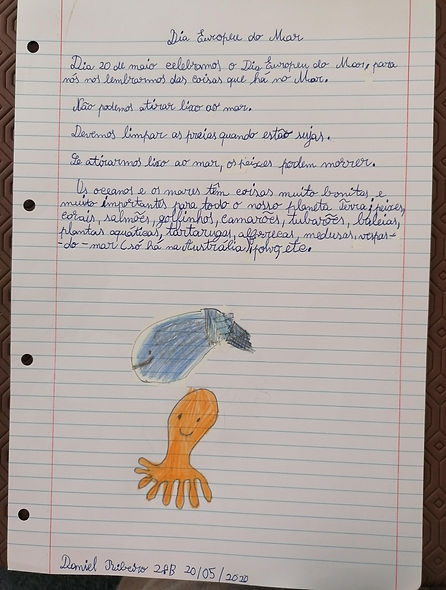 Dia Europeu do Mar
Dia 20 de maio celebramos o Dia Europeu do Mar, para
nós nos lembrarmos das coisas que há no Mar.
Não podemos atirar lixo ao mar.
Devemos limpar as praias quando estão sujas.
Se atirarmos lixo ao mar, os peixes podem morrer.
Os oceanos e os mares têm coisas muito bonitas e
muito importantes para todo o nosso planeta Terra: peixes,
corais, salmões, golfinhos, camarões, tubarões, baleias,
plantas aquáticas, tartarugas, alforrecas, medusas, vespas-
-do-mar (só há na Austrália), etc.
Daniel Ribeiro 2ºB 20/05/2020